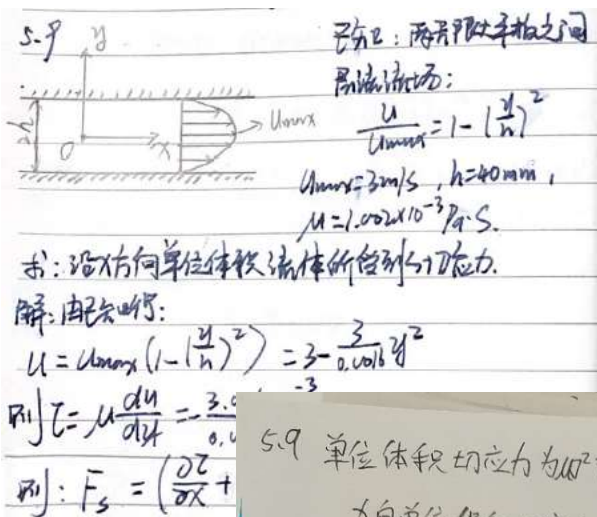 5-9
y
已知：两无限大平板之间
层流流场：
u/umax=1-(y/h)²
umax
2h
O
x
umax=3m/s，h=40mm，
μ=1.002×10⁻³Pa·S.
求：沿x方向单位体积流体所受到的切应力.
解：由已知得：
u=umax(1-(y/h)²)=3-3/0.0016 y²
则τ=μ du/dy =-3.
则：Fs=(∂τ/∂x+
5.9 单位体积切应力为